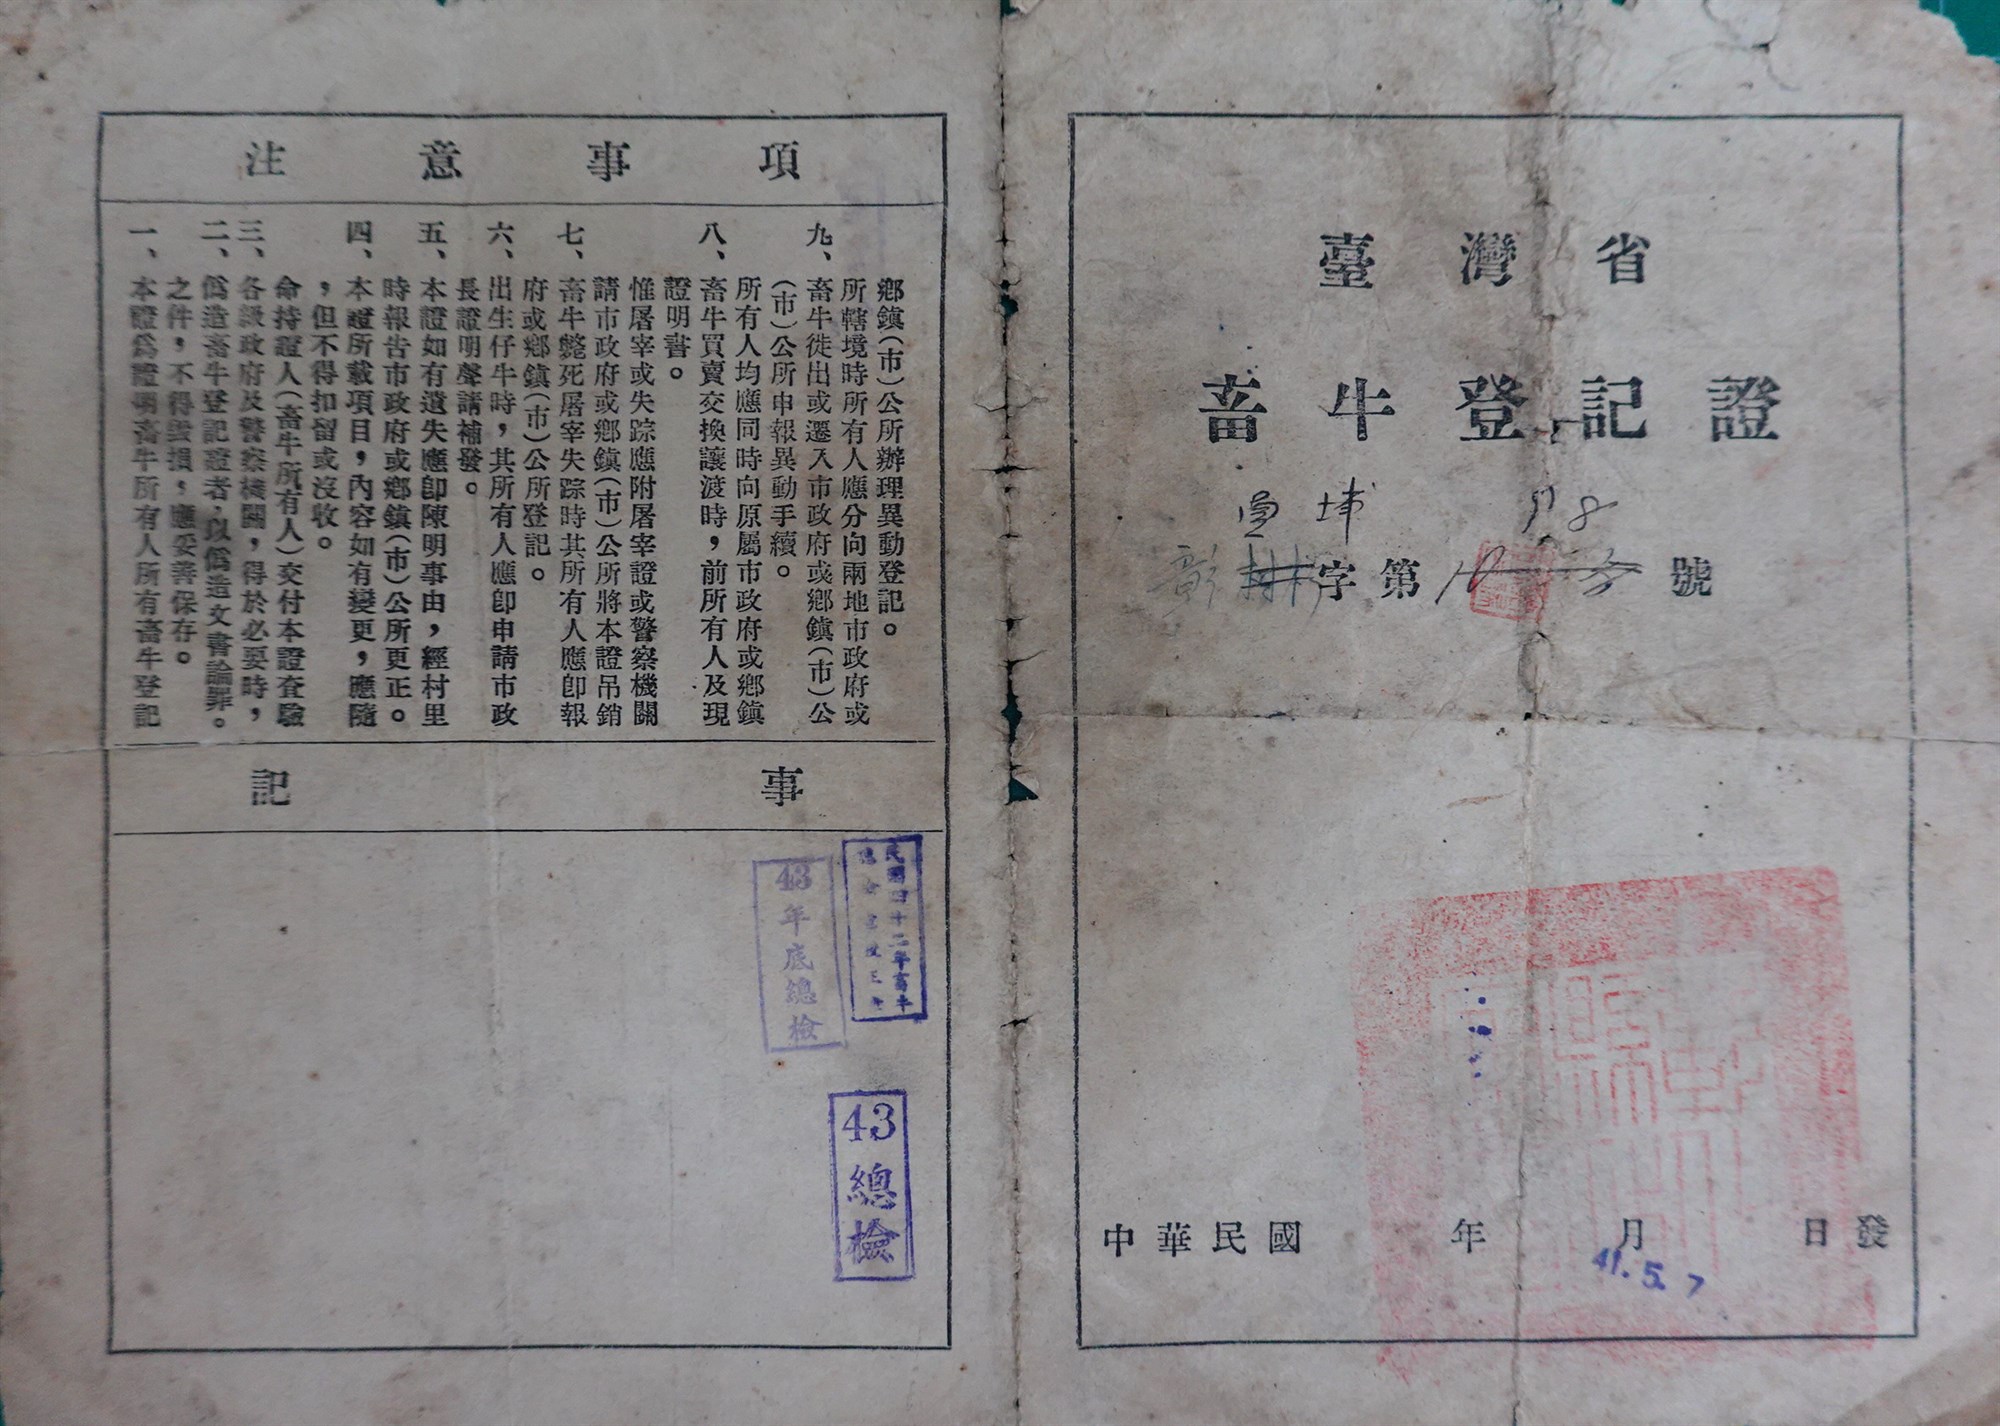 臺灣省
畜牛登記證
埔
字第 號
中華民國 年 月 日發
41.5.7
注意事項
一、本證爲證明畜牛所有人所有畜牛登記
之件，不得毀損，應妥善保存。
二、僞造畜牛登記證者，以僞造文書論罪。
三、各級政府及警察機關，得於必要時，
命持證人（畜牛所有人）交付本證查驗
，但不得扣留或沒收。
四、本證所載項目，內容如有變更，應隨
時報告市政府或鄉鎮（市）公所更正。
五、本證如有遺失應卽陳明事由，經村里
長證明聲請補發。
六、出生仔牛時，其所有人應卽申請市政
府或鄉鎮（市）公所登記。
七、畜牛斃死屠宰失踪時其所有人應卽報
請市政府或鄉鎮（市）公所將本證吊銷
惟屠宰或失踪應附屠宰證或警察機關
證明書。
八、畜牛買賣交換讓渡時，前所有人及現
所有人均應同時向原屬市政府或鄉鎮
（市）公所申報異動手續。
九、畜牛徙出或遷入市政府或鄉鎮（市）公
所轄境時所有人應分向兩地市政府或
鄉鎮（市）公所辦理異動登記。
記事
民國四十二年畜牛
43年底總檢
43總檢